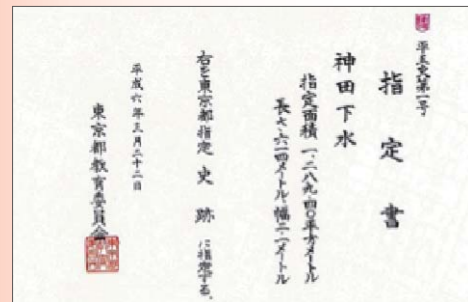 指定書
神田下水
指定面積 一、二八九、四〇平方メートル
長さ、六一四メートル、幅二、一メートル
右を東京都指定 史跡 に指定する。
平成六年三月二十二日
東京都教育委員会